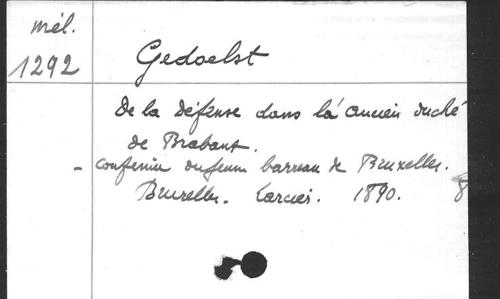 mél.
1292
Gedoelst
De la défense dans l'ancien duché
de Brabant.
- Conférence du jeune barreau de Bruxelles.
Bruxelles. Larcier. 1890. 8